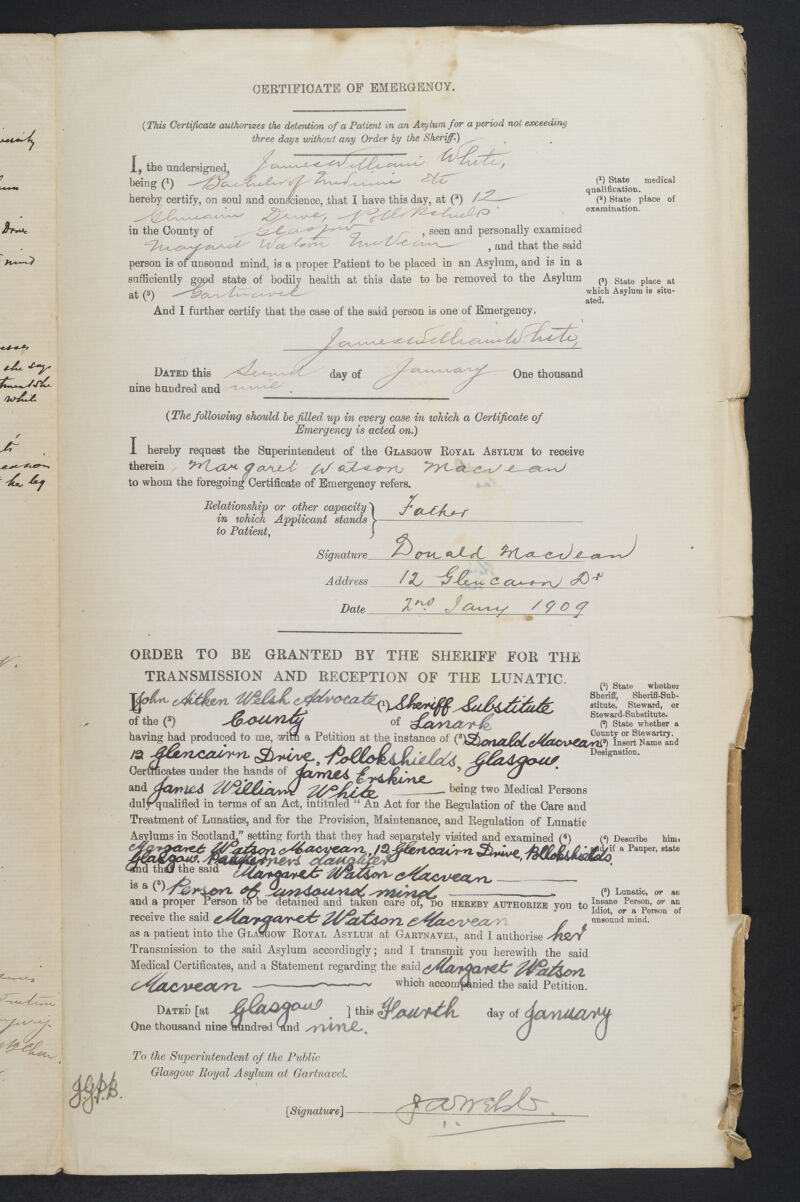 CERTIFICATE OF EMERGENCY.
(This Certificate authorizes the detention of a Patient in an Asylum for a period not exceeding
three days without any Order by the Sheriff.)
I, the undersigned, James William White,
being (¹) Bachelor of Medicine Etc
hereby certify, on soul and conscience, that I have this day, at (²) 12
Glencairn Drive, Pollokshields
in the County of Glasgow, seen and personally examined
Margaret Watson McVean, and that the said
person is of unsound mind, is a proper Patient to be placed in an Asylum, and is in a
sufficiently good state of bodily health at this date to be removed to the Asylum
at (³) Gartnavel
And I further certify that the case of the said person is one of Emergency.
James William White,
DATED this Second day of January One thousand
nine hundred and nine.
(¹) State medical
qualification.
(²) State place of
examination.
(³) State place at
which Asylum is situ-
ated.
(The following should be filled up in every case in which a Certificate of
Emergency is acted on.)
I hereby request the Superintendent of the GLASGOW ROYAL ASYLUM to receive
therein Margaret Watson Macvean
to whom the foregoing Certificate of Emergency refers.
Relationship or other capacity
in which Applicant stands
to Patient,
Father
Signature Donald Macvean
Address 12 Glencairn Dr
Date 2nd Jany 1909
ORDER TO BE GRANTED BY THE SHERIFF FOR THE
TRANSMISSION AND RECEPTION OF THE LUNATIC.
I, John Aitken Welsh Advocate (¹) Sheriff Substitute
of the (²) County of Lanark
having had produced to me, with a Petition at the instance of (³) Donald Macvean
12 Glencairn Drive, Pollokshields, Glasgow.
Certificates under the hands of James Erskine
and James William White being two Medical Persons
duly qualified in terms of an Act, intituled "An Act for the Regulation of the Care and
Treatment of Lunatics, and for the Provision, Maintenance, and Regulation of Lunatic
Asylums in Scotland," setting forth that they had separately visited and examined (⁴)
Margaret Watson Macvean, 12 Glencairn Drive, Pollokshields,
Glasgow. daughter
and that the said Margaret Watson Macvean
is a (⁵) Person of unsound mind
and a proper Person to be detained and taken care of, DO HEREBY AUTHORIZE you to
receive the said Margaret Watson Macvean
as a patient into the GLASGOW ROYAL ASYLUM at GARTNAVEL, and I authorise her
Transmission to the said Asylum accordingly; and I transmit you herewith the said
Medical Certificates, and a Statement regarding the said Margaret Watson
Macvean which accompanied the said Petition.
DATED [at Glasgow ] this Fourth day of January
One thousand nine hundred and nine.
(¹) State whether
Sheriff, Sheriff-Sub-
stitute, Steward, or
Steward-Substitute.
(²) State whether a
County or Stewartry.
(³) Insert Name and
Designation.
(⁴) Describe him;
and if a Pauper, state
so.
(⁵) Lunatic, or an
Insane Person, or an
Idiot, or a Person of
unsound mind.
To the Superintendent of the Public
Glasgow Royal Asylum at Gartnavel.
J.G.P.B.
[Signature] J A Welsh